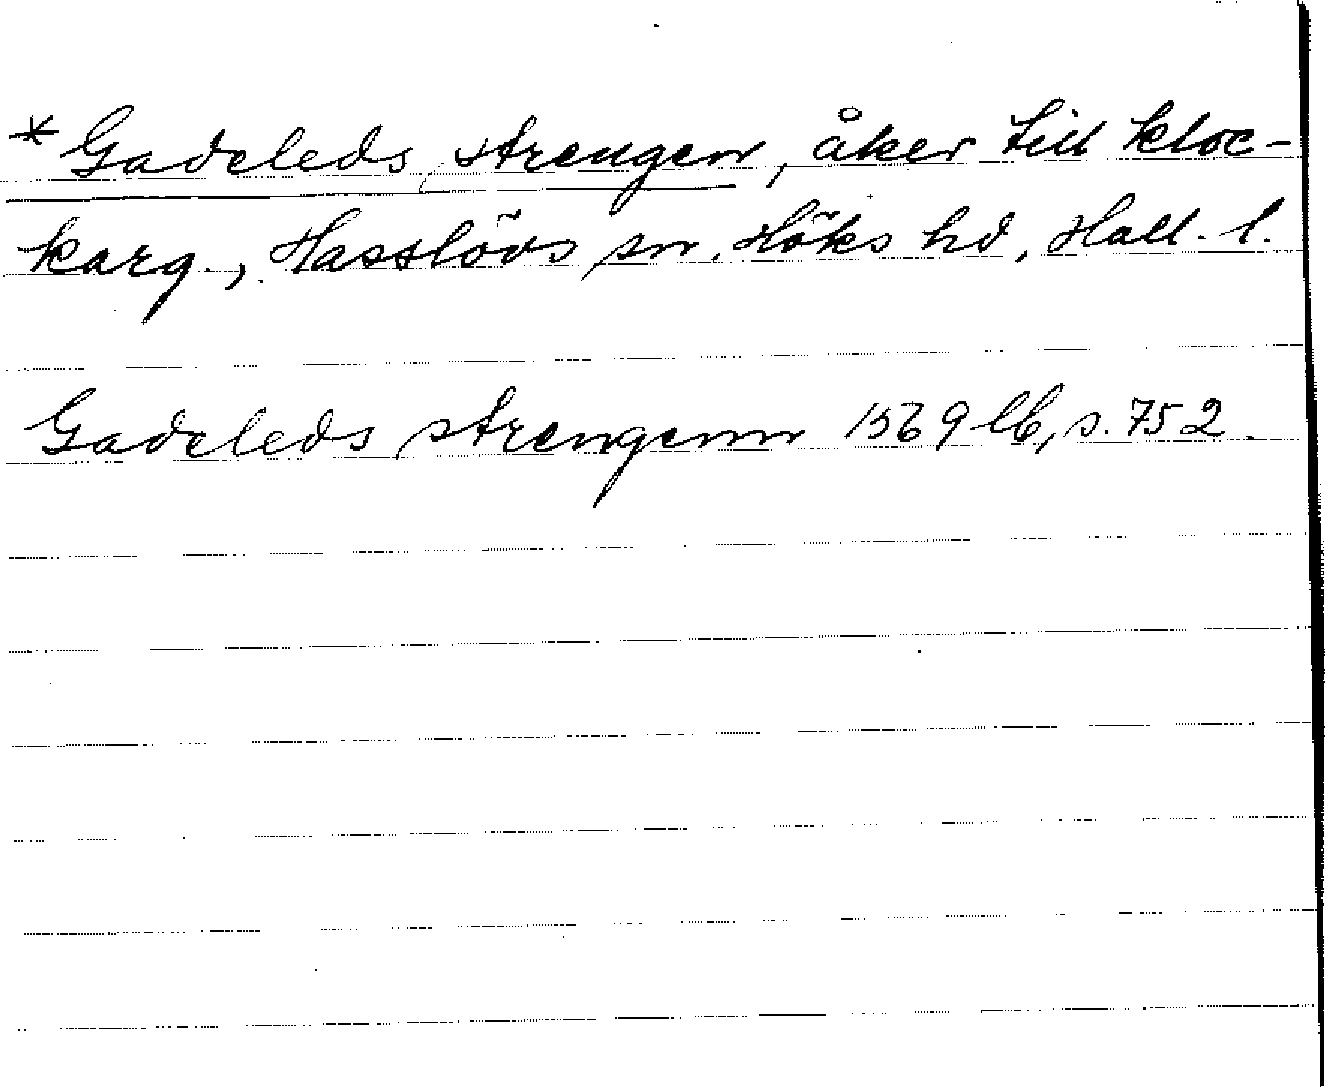 *Gadeleds strengen, åker till kloc-
karg., Hasslövs sn, Höks hd, Hall. l.
Gadeleds strengenn 1569 lb, s. 752.